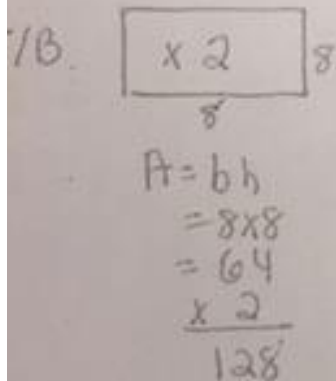 /B. x 2 8
8
A = bh
= 8x8
= 64
x 2
128